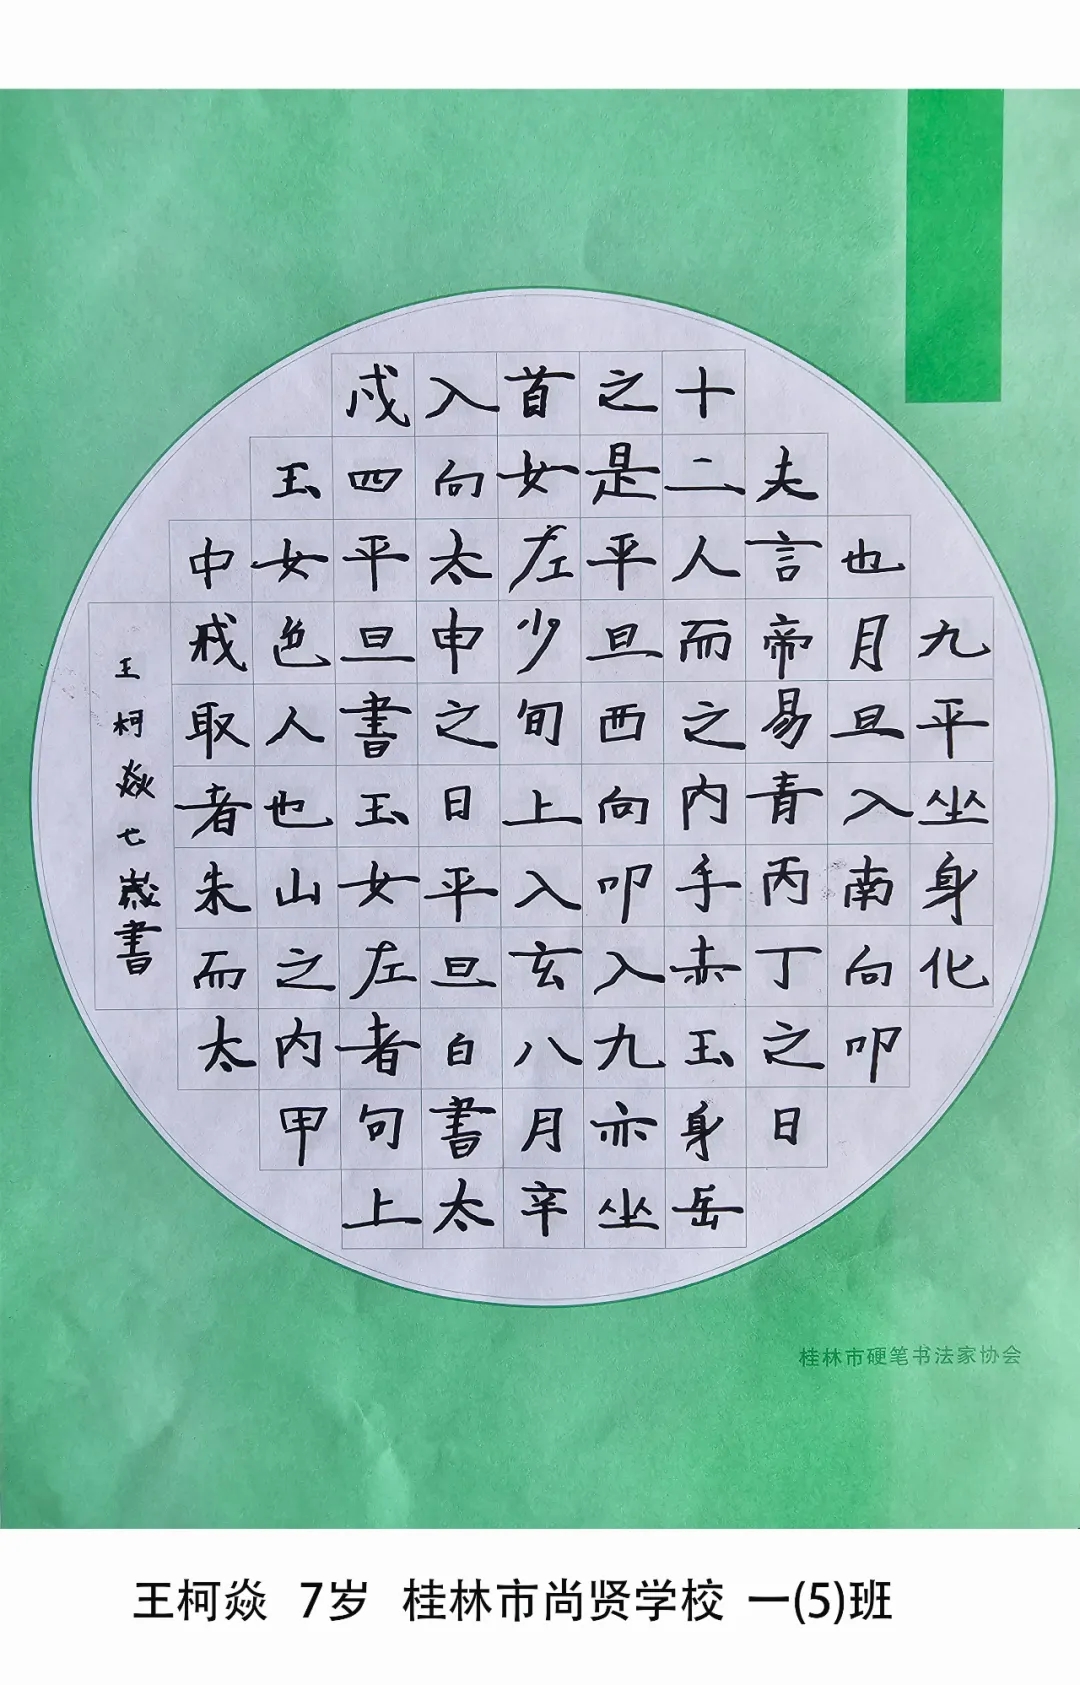 九平坐身化
也月旦入南向叩
夫言帝易青丙丁之日
十二人而之内手赤玉身岳
之是平旦西向叩入九亦坐
首女左少旬上入玄八月辛
入向太申之日平旦白書太
戍四平旦書玉女左者句上
玉女色人也山之内甲
中戒取者朱而太
王柯焱七歲書
桂林市硬笔书法家协会
王柯焱 7岁 桂林市尚贤学校 一(5)班